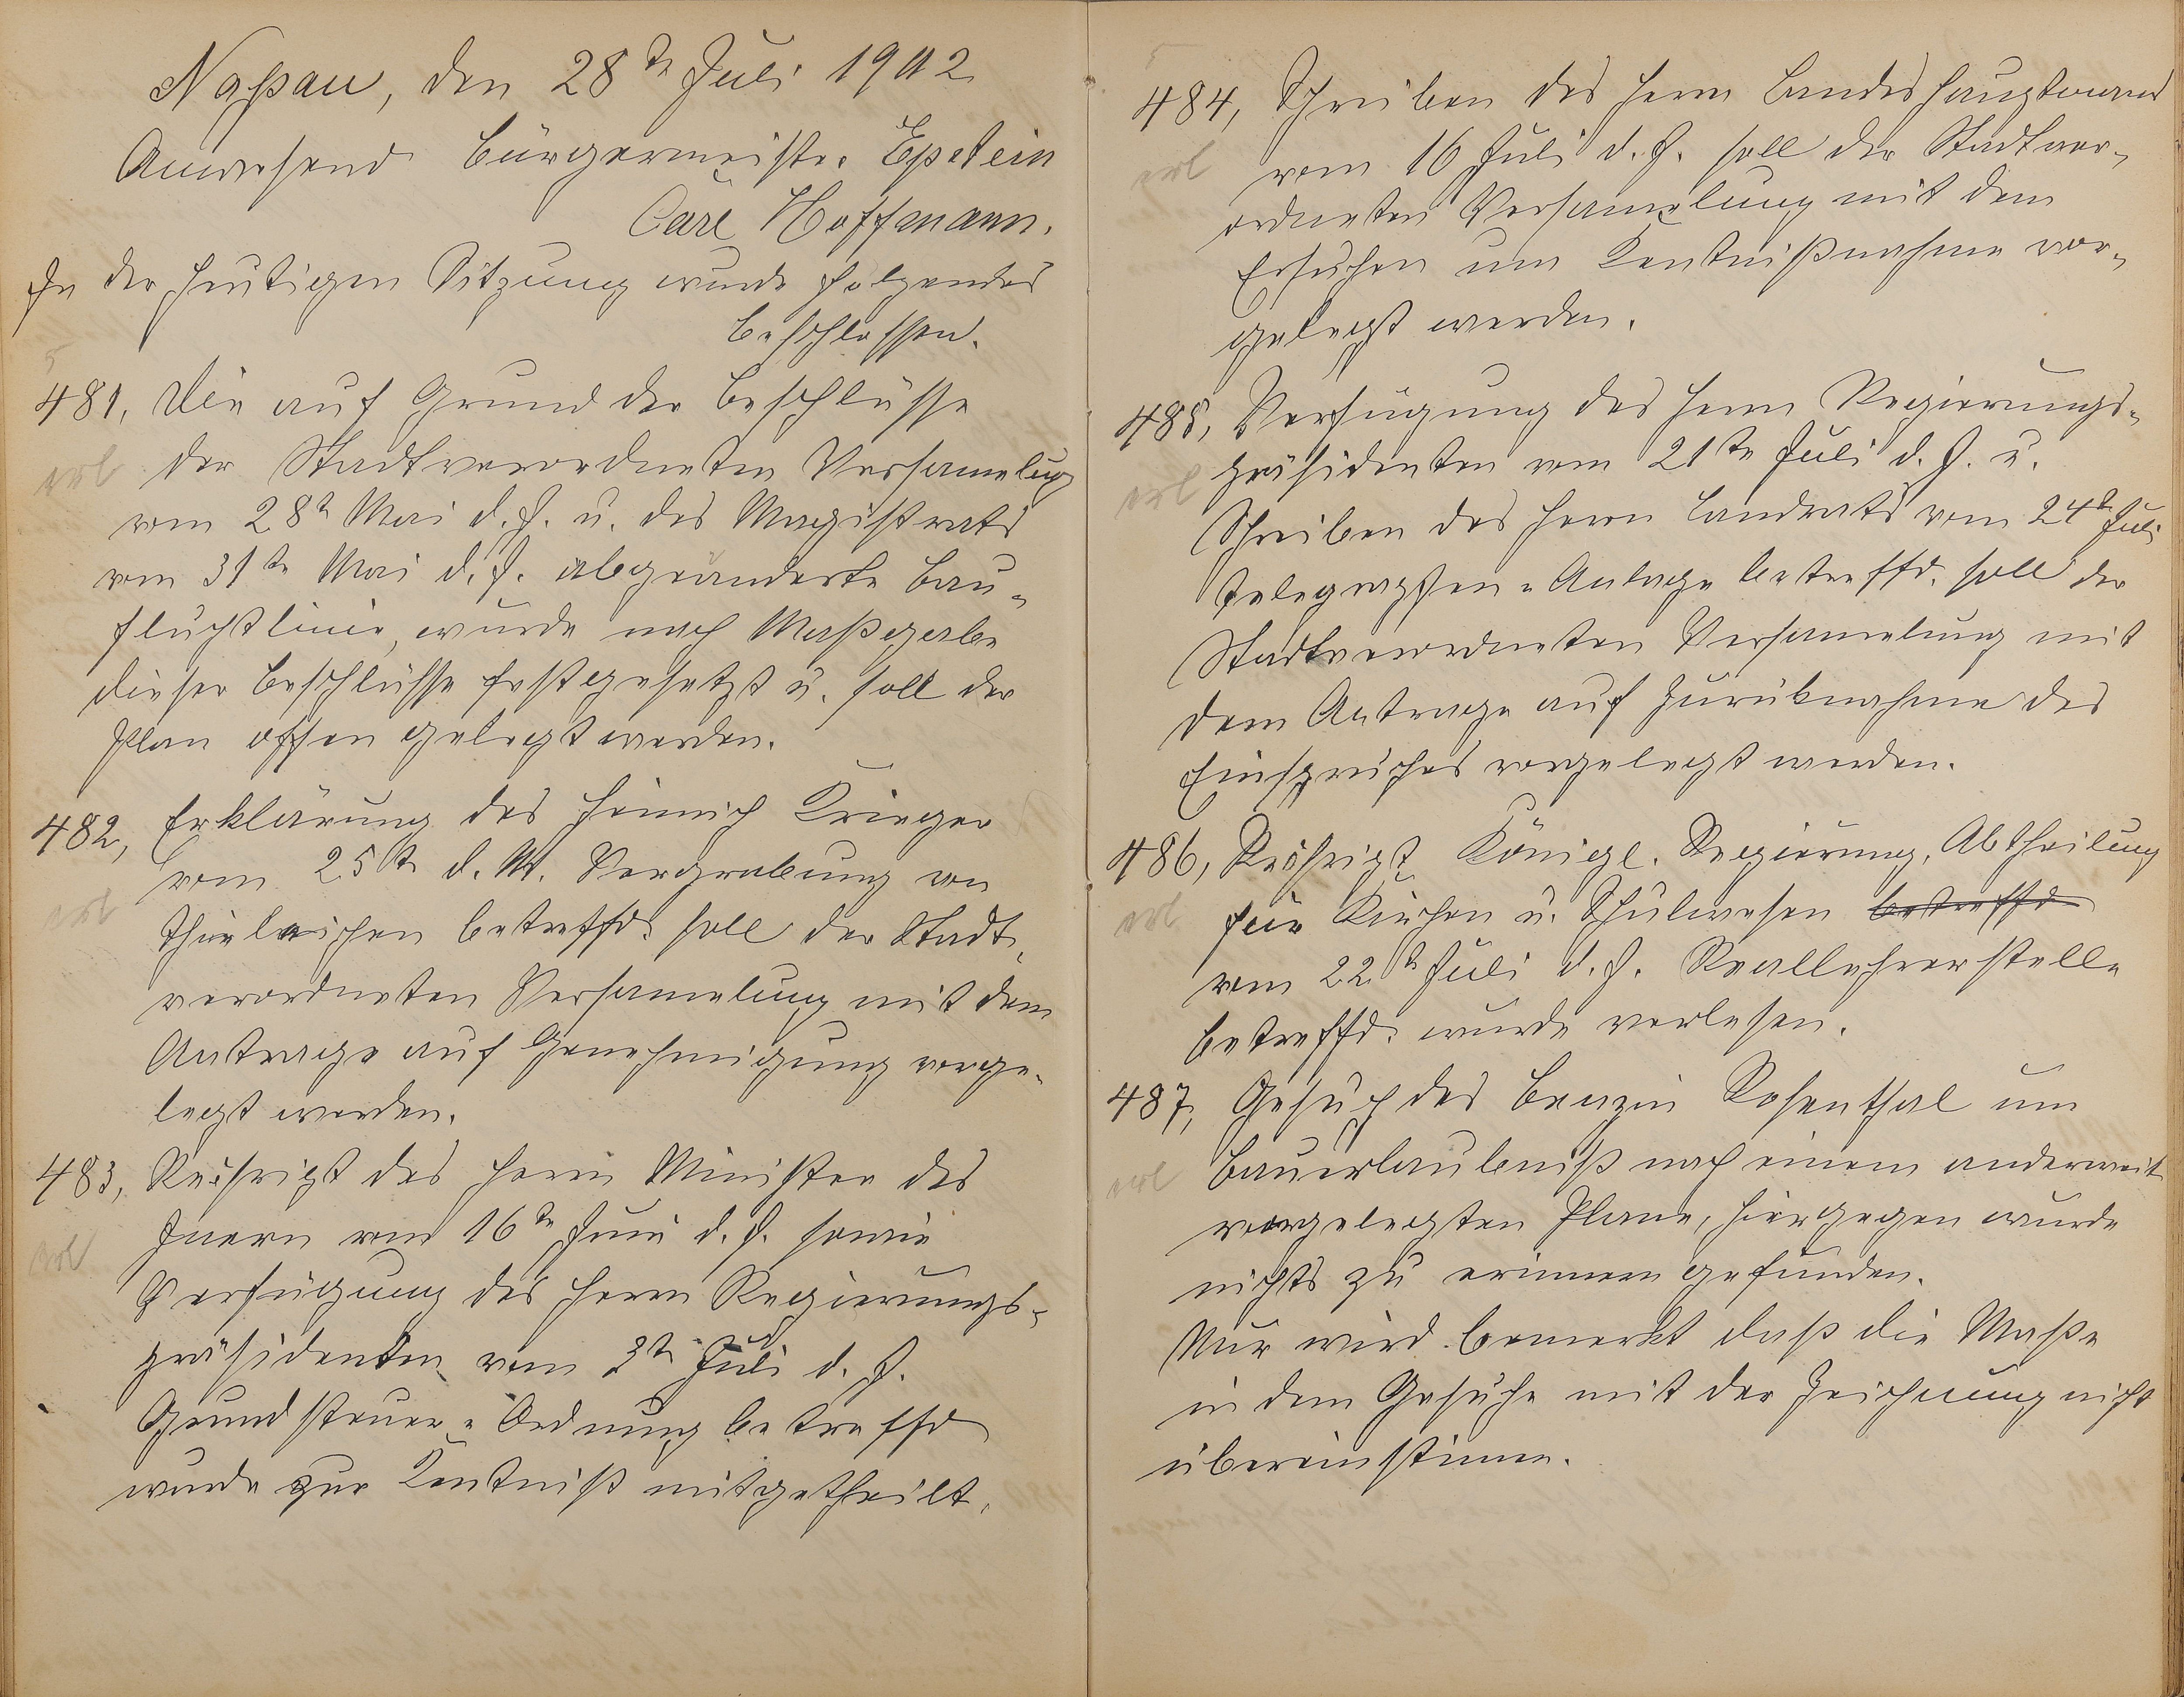 Naßau, den 28te Juli 1902
Anwesend Bürgermeister Epstein
Carl Hoffmann.
In der heutigen Sitzung wurde folgendes
beschlossen.
481, Die auf Grund der Beschlüsse
erl der Stadtverordneten Versamelung
vom 28t Mai d. J. u. des Magistrats
vom 31te Mai d. J. abgeänderte Bau-
fluchtlinie, wurde nach Maßgabe
dieser Beschlüsse festgesetzt u. soll der
Plan offen gelegt werden.
482, Erklärung des Heinrich Krieger
erl vom 25te d. M. Vergrabung von
Thierleichen betreffd. soll der Stadt-
verordneten Versamelung mit dem
Antrage auf Genehmigung vorge-
legt werden.
483, Reskript des Herrn Minister des
erl Inern vom 16te Juni d. J. sowie
Verfügung des Herrn Regierungs-
präsidenten vom 3te Juli d. J.
Grundsteuer-Ordnung betreffd
wurde zur Kentniß mitgetheilt.
484, Schreiben des Herrn Landeshauptmann
erl vom 16 Juli d. J. soll der Stadtver-
ordneten Versamelung mit dem
Ersuchen um Kentnißnahme vor-
gelegt werden.
485, Verfügung des Herrn Regierungs-
erl präsidenten vom 21te Juli d. J. u.
Schreiben des Herrn Landrats vom 24te Juli
Telegraphen-Anlage betreffd. soll der
Stadtverordneten Versamelung mit
dem Antrage auf Zurüknahme des
Einspruches vorgelegt werden.
486, Reskript Königl. Regierung, Abtheilung
erl für Kirchen u. Schulwesen betreffd
vom 22te Juli d. J. Reallehrerstelle
betreffd. wurde verlesen.
487, Gesuch des Rosenthal um
erl Bauerlaubniß nach einem anderweit
vorgelegten Plane, hiergegen wurde
nichts zu erinnern gefunden.
Nur wird bemerkt daß die Maße
in dem Gesuche mit der Zeichnung nicht
übereinstimen.